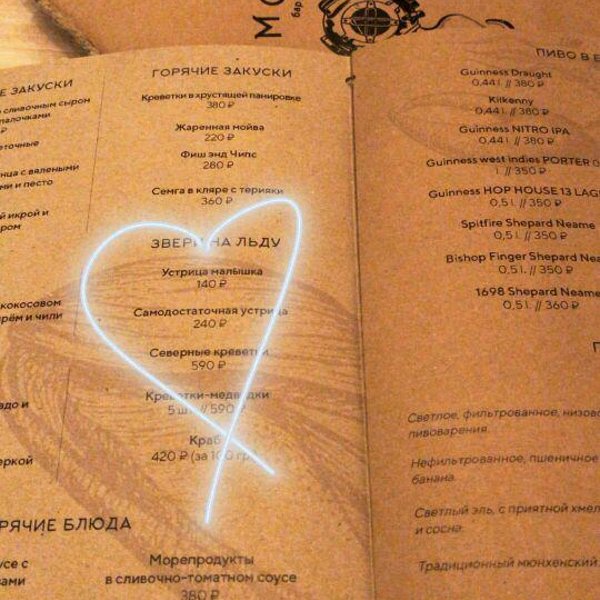 МО
бар
Е ЗАКУСКИ
сливочным сыром
палочками
нца с вялеными
ми и песто
й икрой и
ром
кокосовом
рём и чили
адо и
еркой
ГОРЯЧИЕ ЗАКУСКИ
Креветки в хрустящей панировке
380 ₽
Жаренная мойва
220 ₽
Фиш энд Чипс
280 ₽
Семга в кляре с терияки
360 ₽
ЗВЕРИ НА ЛЬДУ
Устрица малышка
140 ₽
Самодостаточная устрица
240 ₽
Северные креветки
590 ₽
Креветки-медведки
5 шт // 590 ₽
Краб
420 ₽ (за 100 гр)
РЯЧИЕ БЛЮДА
усе с
вами
Морепродукты
в сливочно-томатном соусе
380 ₽
ПИВО В Б
Guinness Draught
0,44 l. // 380 ₽
Kilkenny
0,44 l. // 380 ₽
Guinness NITRO IPA
0,44 l. // 380 ₽
Guinness west indies PORTER 0
l. // 350 ₽
Guinness HOP HOUSE 13 LAG
0,5 l. // 350 ₽
Spitfire Shepard Neame
0,5 l. // 350 ₽
Bishop Finger Shepard Nea
0,5 l. // 350 ₽
1698 Shepard Neame
0,5 l. // 360 ₽
Светлое, фильтрованное, низово
пивоварения.
Нефильтрованное, пшеничное
банана.
Светлый эль, с приятной хмел
и сосна.
Традиционный мюнхенский